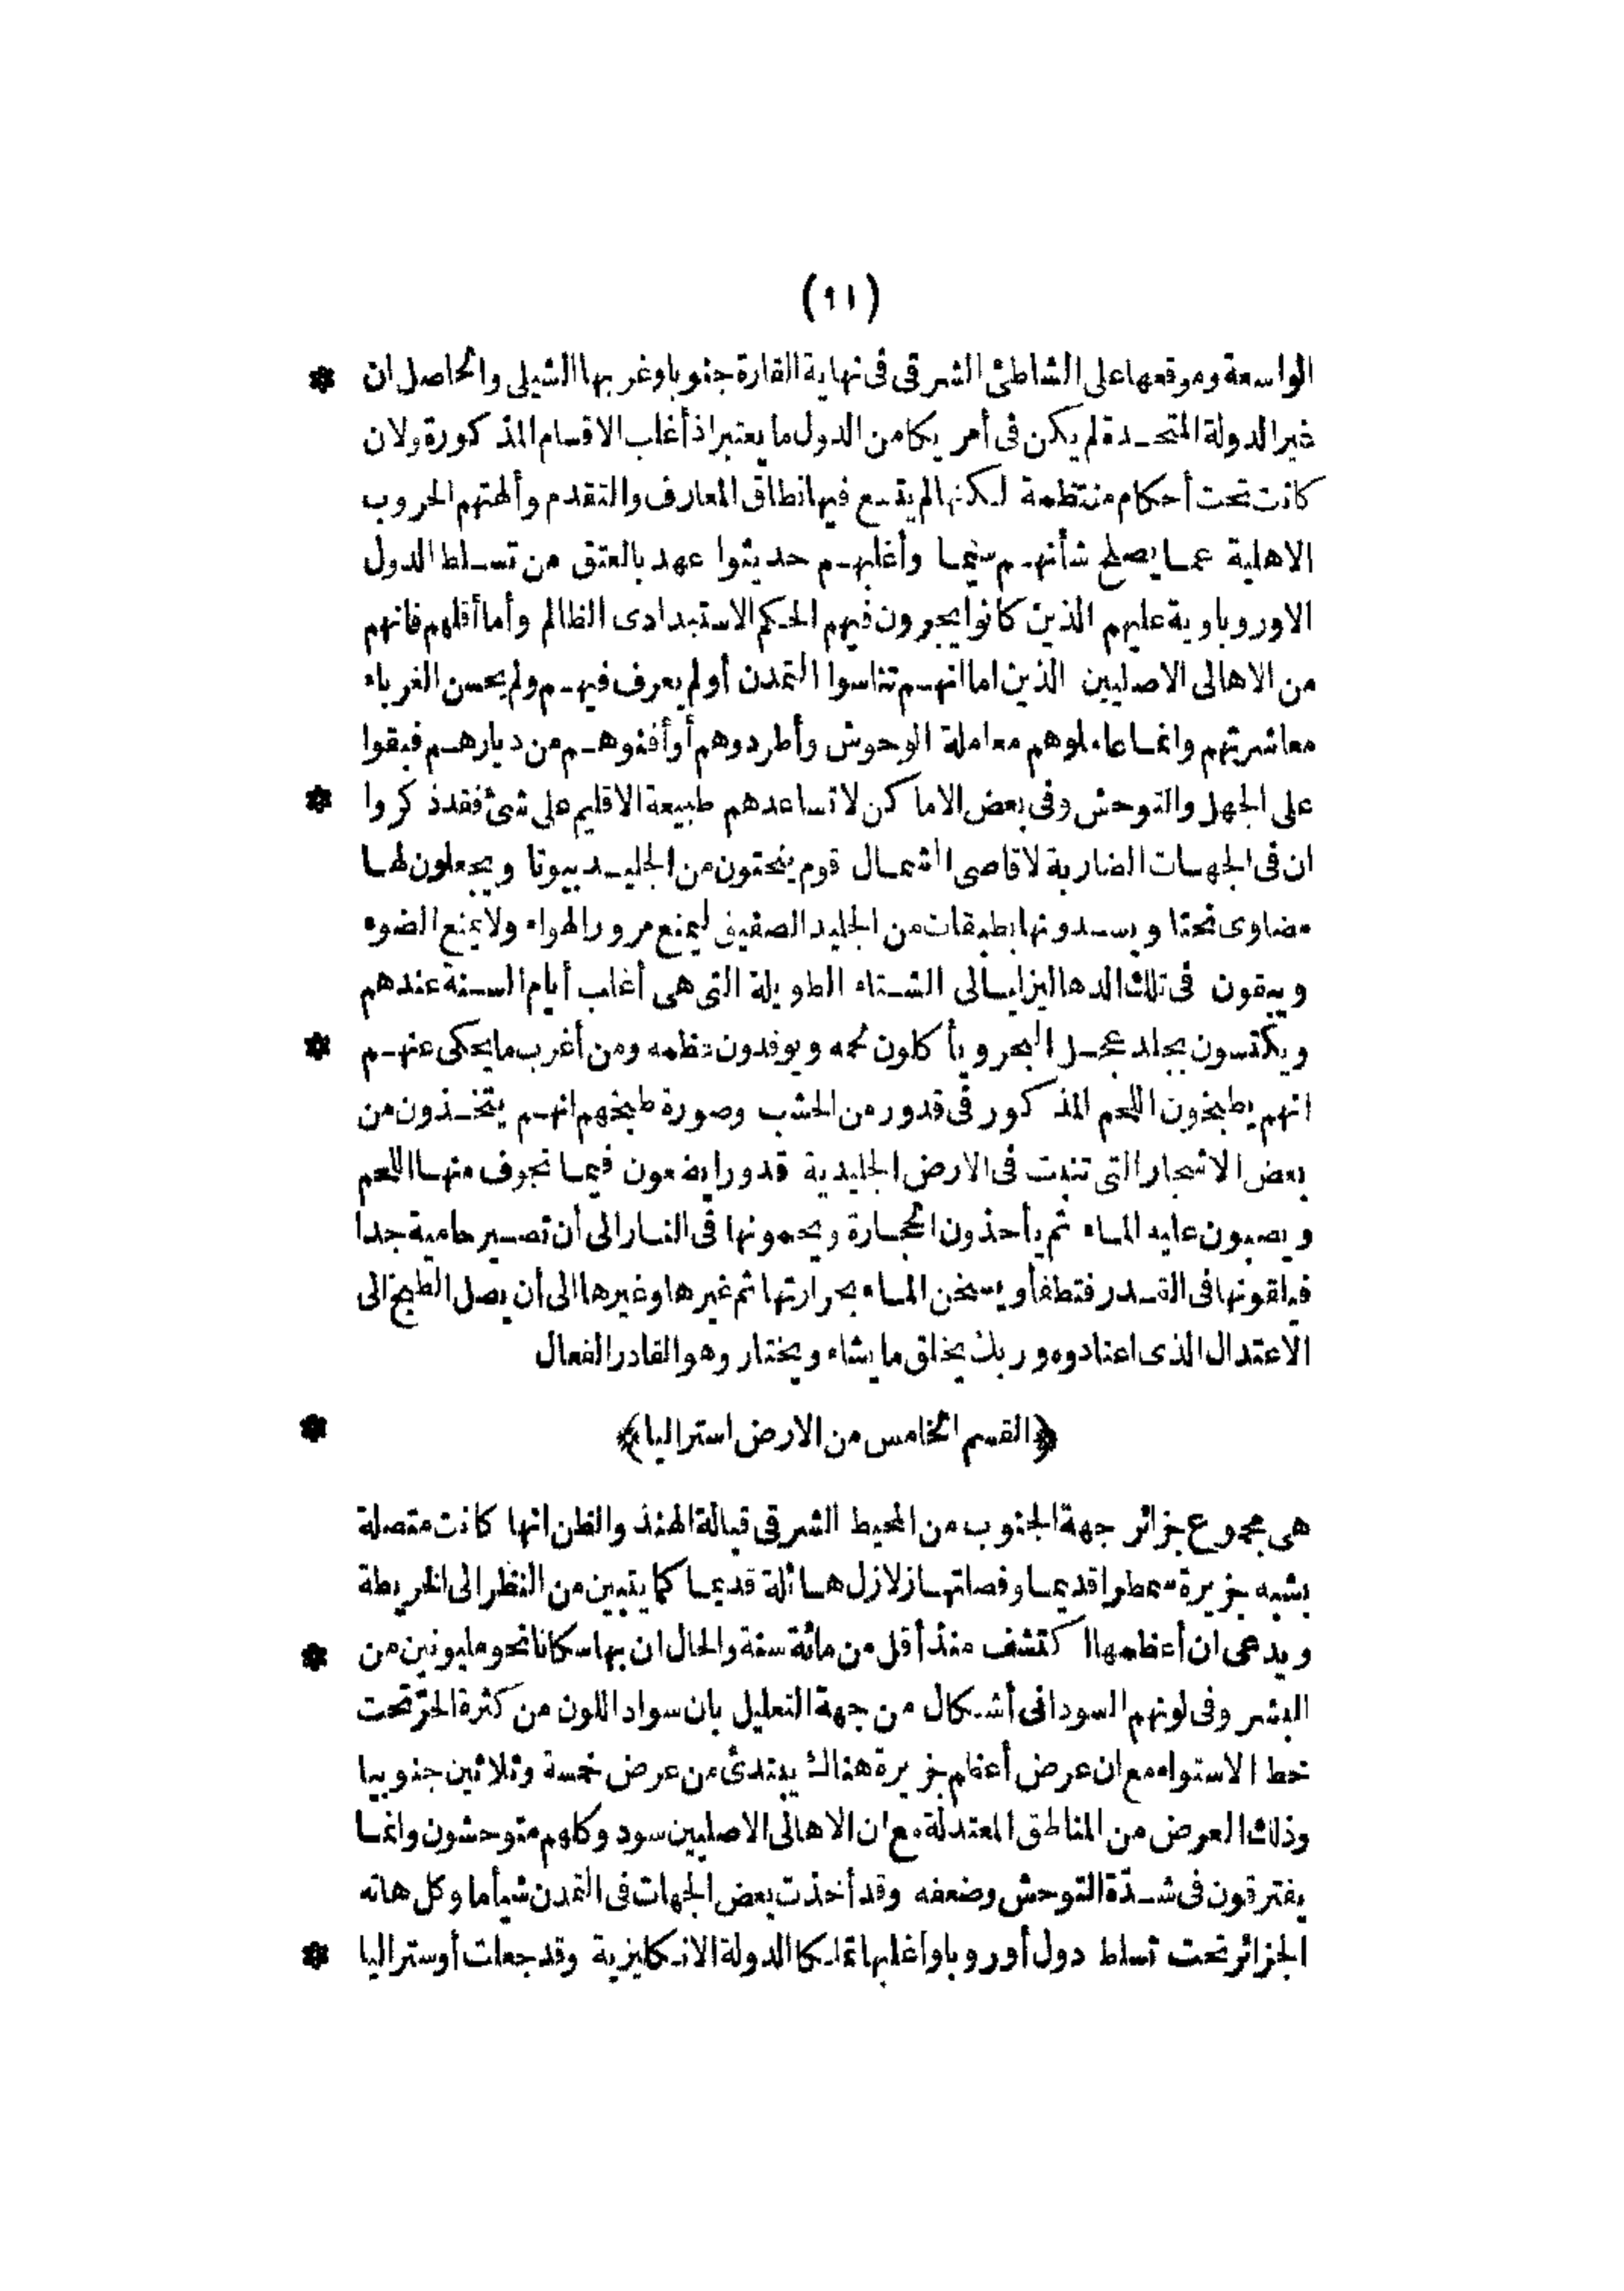 (٩١)
الواسعة وموقعها على الشاطئ الشرقى فى نهاية القارة جنوبا وغربيها الشيلى والحاصل ان *
غير الدولة المتحدة لم يكن فى أمريكا من الدول ما يعتبر اذ أغلب الاقسام المذكورة ولان
كانت تحت أحكام منتظمة لكنها لم يتسع فيها نطاق المعارف والتقدم وألهتهم الحروب
الاهلية عما يصلح شأنهم سيما وأغلبهم حديثوا عهد بالعتق من تسلط الدول
الاوروباوية عليهم الذين كانوا يجرون فيهم الحكم الاستبدادى الظالم وأما أقلهم فانهم
من الاهالى الاصليين الذين اما انهم تناسوا التمدن أو لم يعرف فيهم ولم يحسن الغرباء
معاشرتهم وانما عاملوهم معاملة الوحوش وأطردوهم أو أفنوهم من ديارهم فبقوا
على الجهل والتوحش وفى بعض الاماكن لا تساعدهم طبيعة الاقليم على شئ فقد ذكروا *
ان فى الجهات الضاربة لاقاصى الشمال قوم ينحتون من الجليد بيوتا ويجعلون لها
مضاوى نحتا ويسدونها بطبقات من الجليد الصفيق ليمنع مرور الهواء ولا يمنع الضوء
ويبقون فى تلك الدهاليز ليالى الشتاء الطويلة التى هى أغلب أيام السنة عندهم
ويكتسون بجلد عجل البحر ويأكلون لحمه ويوقدون عظمه ومن أغرب ما يحكى عنهم *
انهم يطبخون اللحم المذكور فى قدور من الخشب وصورة طبخهم انهم يتخذون من
بعض الاشجار التى تنبت فى الارض الجليدية قدورا يضعون فيما تجوف منها اللحم
ويصبون عليه الماء ثم يأخذون الحجارة ويحمونها فى النار الى أن تصير حامية جدا
فيلقونها فى القدر فتطفأ ويسخن الماء بحرارتها ثم غيرها وغيرها الى أن يصل الطبخ الى
الاعتدال الذى اعتادوه وربك يخلق ما يشاء ويختار وهو القادر الفعال
﴿القسم الخامس من الارض استراليا﴾ *
هى مجموع جزائر جهة الجنوب من المحيط الشرقى قبالة الهند والظن انها كانت متصلة
بشبه جزيرة سمطرا قديما وفصلتها زلازل هائلة قديما كما يتبين من النظر الى الخريطة
ويدعى ان أعظمها اكتشف منذ أقل من مائة سنة والحال ان بها سكانا نحو مليونين من *
البشر وفى لونهم السودانى أشكال من جهة التعليل بان سواد اللون من كثرة الحرّ تحت
خط الاستواء مع ان عرض أعظم جزيرة هناك يبتدئ من عرض خمسة وثلاثين جنوبيا
وذلك العرض من المناطق المعتدلة مع ان الاهالى الاصليين سود وكلهم متوحشون وانما
يفترقون فى شدّة التوحش وضعفه وقد أخذت بعض الجهات فى التمدن شيأ ما وكل هاته
الجزائر تحت تسلط دول أوروبا وأغلبها تملكا الدولة الانكليزية وقد جعلت أوستراليا *